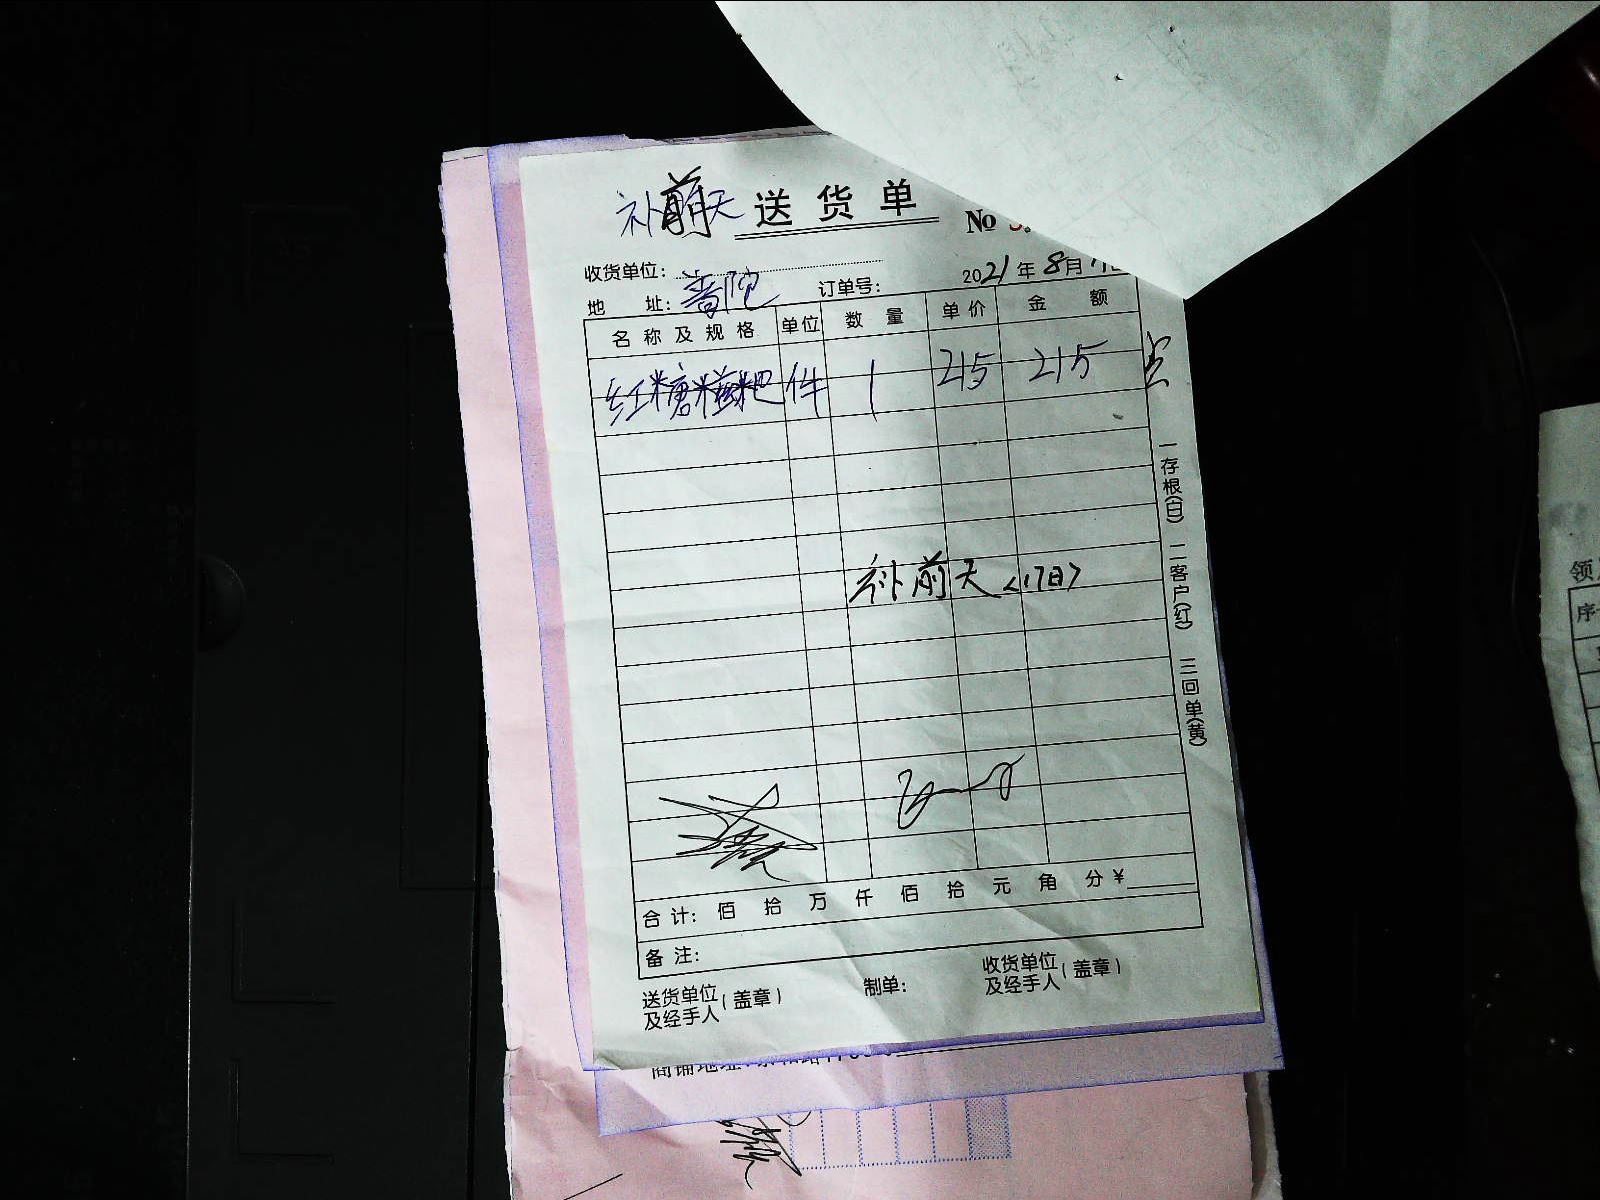 补前天 送货单 No
收货单位:
2021年8月17日
地 址: 普陀 订单号:
名称及规格 单位 数量 单价 金额
红糖糍粑 件 1 215 215
补前天<17日>
一存根(白) 二客户(红) 三回单(黄)
合计: 佰 拾 万 仟 佰 拾 元 角 分 ¥
备注:
送货单位及经手人(盖章) 制单: 收货单位及经手人(盖章)
商铺地址:
领
序